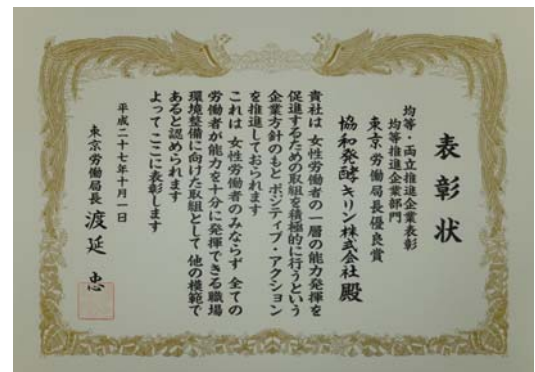 表彰状
均等・両立推進企業表彰
均等推進企業部門
東京労働局長優良賞
協和発酵キリン株式会社殿
貴社は 女性労働者の一層の能力発揮を
促進するための取組を積極的に行うという
企業方針のもと ポジティブ・アクション
を推進しておられます
これは 女性労働者のみならず 全ての
労働者が能力を十分に発揮できる職場
環境整備に向けた取組として 他の模範で
あると認められます
よってここに表彰します
平成二十七年十月一日
東京労働局長 渡延 忠